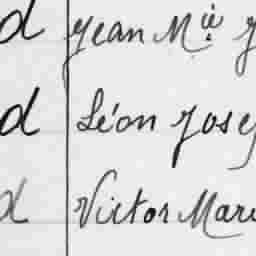 d Jean M.ie J
d Léon Josep
d Victor Mari